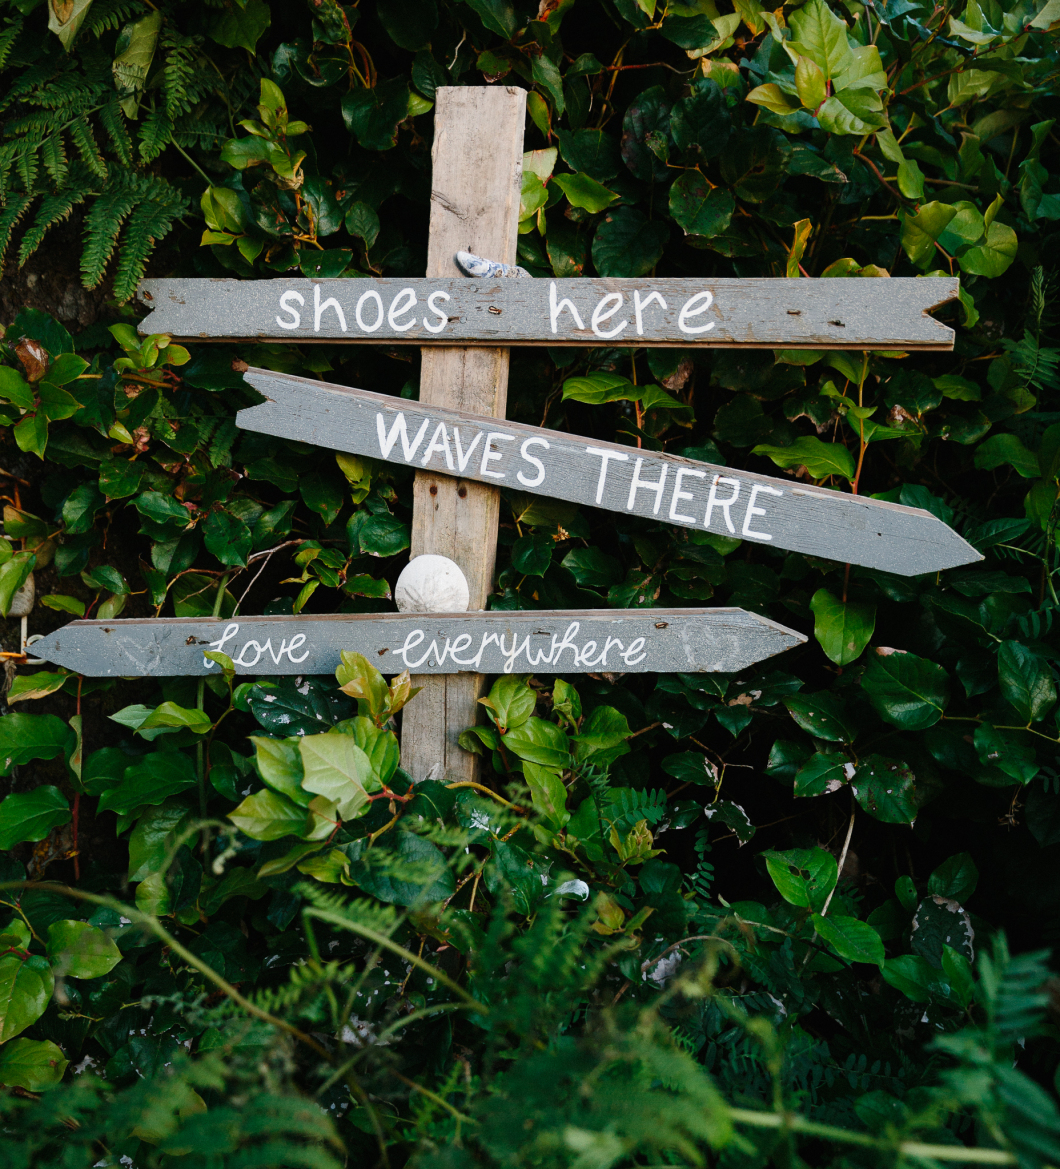 shoes here
WAVES THERE
Love everywhere